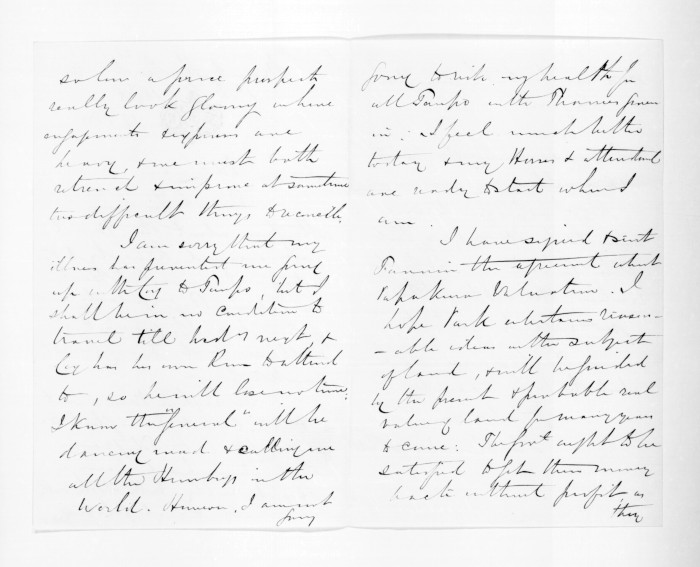 so low a price prospects
really look gloomy where
engagements & expenses are
heavy, & we must both
retrench & improve at sometime
two difficult things to reconcile.
I am sorry that my
illness has prevented me going
up with Coy to Taupo, but I
shall be in no condition to
travel till next, &
Coy has his own Run to attend
to, so he will lose no time;
I know the "General" will be
dancing mad & calling me
all the Humbugs in the
World. However, I am not
going
going to risk my health for
all Taupo with the Thames thrown
in: I feel much better
today & my Horses & attendant
are ready to start when I
am.
I have signed & sent
Tannin the agreement about
Papakura Valuation. I
hope Park entertains reason-
-able ideas on the subject
of land, & will be guided
by the present & probable real
value of land for many years
to come: The Govt ought to be
satisfied to get their money
back without profit, as
they